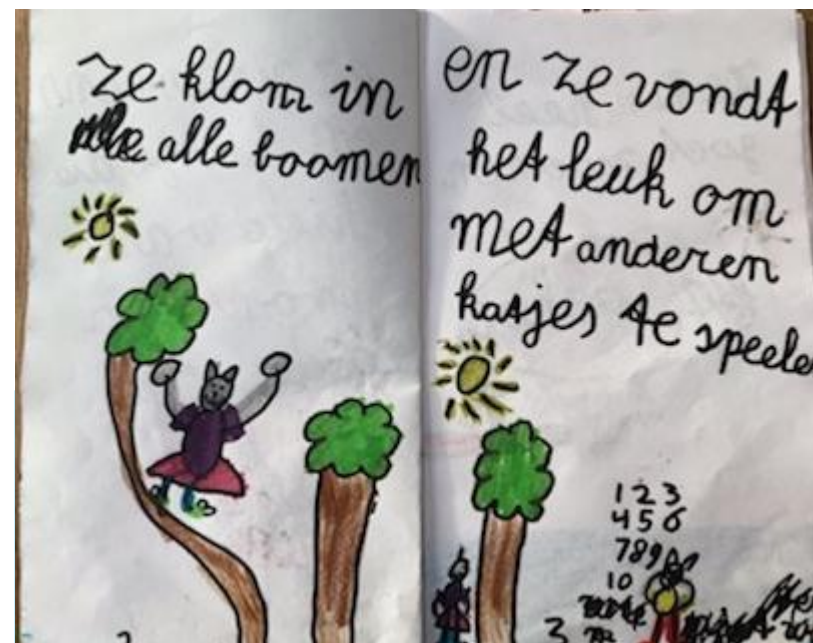 ze klom in
alle boomen
en ze vondt
het leuk om
met anderen
katjes te speele
1 2 3
4 5 6
7 8 9
10
3